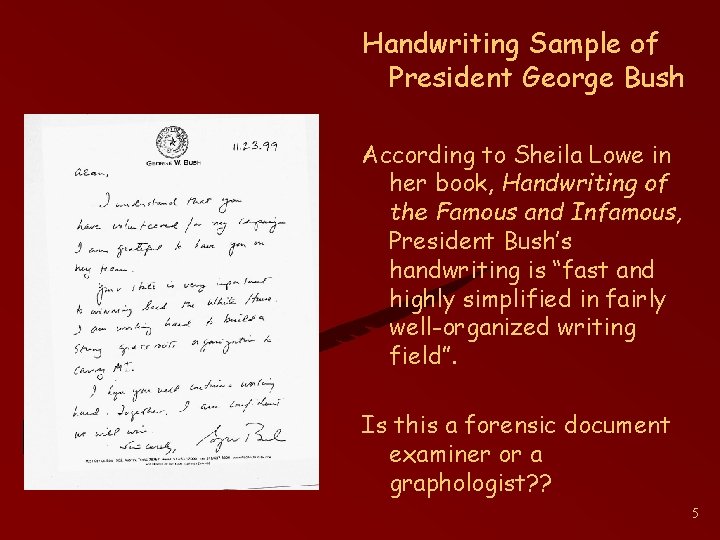 Handwriting Sample of
President George Bush
11.23.99
GEORGE W. BUSH
Alan,
I understand that you
have volunteered for my campaign
I am grateful to have you on
my team.
Your state is very important
to winning back the White House.
I am working hard to build a
strong grass roots organization to
carry
I hope you will continue working
hard. Together, I am confident
we will win.
Sincerely,
According to Sheila Lowe in
her book, Handwriting of
the Famous and Infamous,
President Bush’s
handwriting is “fast and
highly simplified in fairly
well-organized writing
field”.
Is this a forensic document
examiner or a
graphologist? ?
5